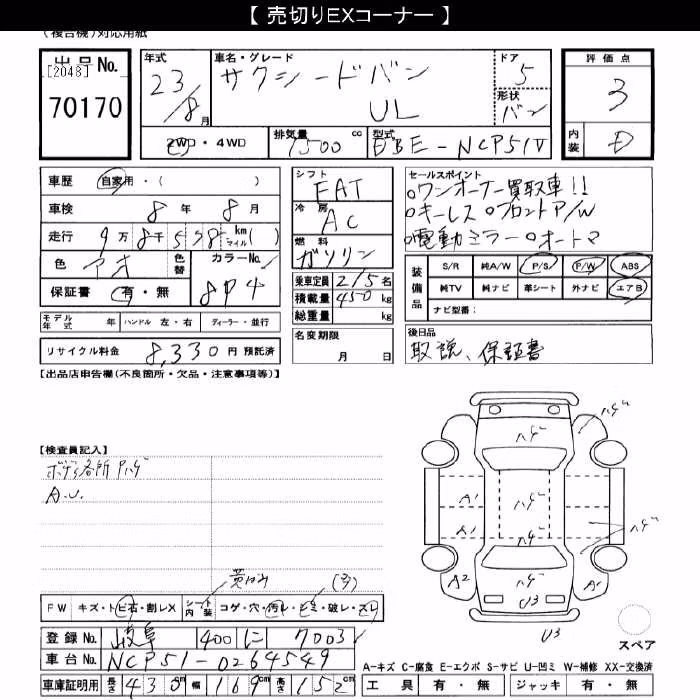 【 売切りEXコーナー 】
(複合機)対応用紙
出品No.
[2048]
70170
年式 23/8月
車名・グレード サクシードバン UL
ドア 5
形状 バン
評価点 3
内装 D
2WD・4WD
排気量 1500 cc
型式 DBE-NCP51V
車歴 自家用・( )
車検 8年 8月
走行 9万8千578 km マイル( )
色 アオ 色替 カラーNo. 8P4
保証書 有・無
シフト FAT
冷房 AC
燃料 ガソリン
乗車定員 2/5名
積載量 450 kg
総重量 kg
セールスポイント
○ワンオーナー買取車!!
○キーレス○フロントP/W
○電動ミラー○オートマ
装備品 S/R 純A/W P/S P/W ABS
純TV 純ナビ 革シート 外ナビ エアB
ナビ型番:
モデル年式 年 ハンドル 左・右 ディーラー・並行
名変期限 月 日
リサイクル料金 8,330円 預託済
後日品
取説、保証書
【出品店申告欄(不良箇所・欠品・注意事項等)】
【検査員記入】
ボディ各所Pハゲ
A.U.
ハゲ
ハゲ
ハゲ
A1
A1
ハゲ
ハゲ
A2
ハゲ
A1
U3
U3
スペア
黄ばみ (多)
FW キズ・トビ石・割レX シート内装 コゲ・穴・汚レ・シミ・破レ・スレ
登録No. 岐阜 400 に 7003
車台No. NCP51-0264549
車庫証明用 長さ 430cm 幅 169cm 高さ 152cm
A-キズ C-腐食 E-エクボ S-サビ U-凹ミ W-補修 XX-交換済
工具 有・無 ジャッキ 有・無